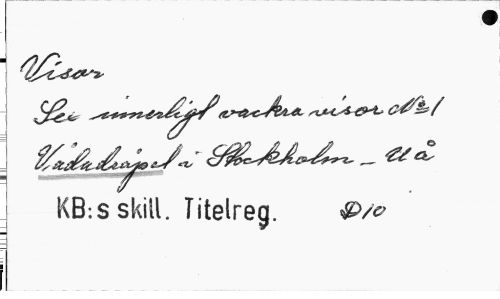 Visor
Se innerligt vackra visor No 1
Vådadråpet i Stockholm – u å
KB:s skill. Titelreg. D10